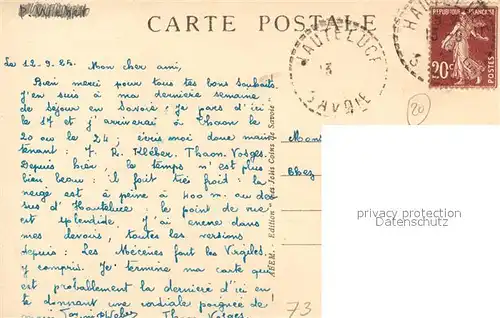 CARTE POSTALE
Le 12.9.25. Mon cher ami,
Bien merci pour tous tes bons souhaits.
J'en suis à ma dernière semaine
de séjour en Savoie; Je pars d'ici
le 17 et j'arriverai à Thaon le
20 ou le 24; écris moi donc main
tenant: 7. R. Kléber. Thaon. Vosges.
Depuis hier le temps n'est plus
bien beau: il fait très froid: la
neige est à peine à 400 m. au des
sus d'Hauteluce. le point de vue
est splendide. J'ai encore dans
mes devoirs, toutes les versions
depuis: Les Mécènes font les Virgiles.
y compris. Je termine ma carte qui
est probablement la dernière d'ici en
te donnant une cordiale poignée de
Thaon. Vosges.
HAUTELUCE
SAVOIE
REPUBLIQUE FRANÇAISE
20c
POSTES
20
Edition "Les Jolis Coins de Savoie"
privacy protection
Datenschutz
73